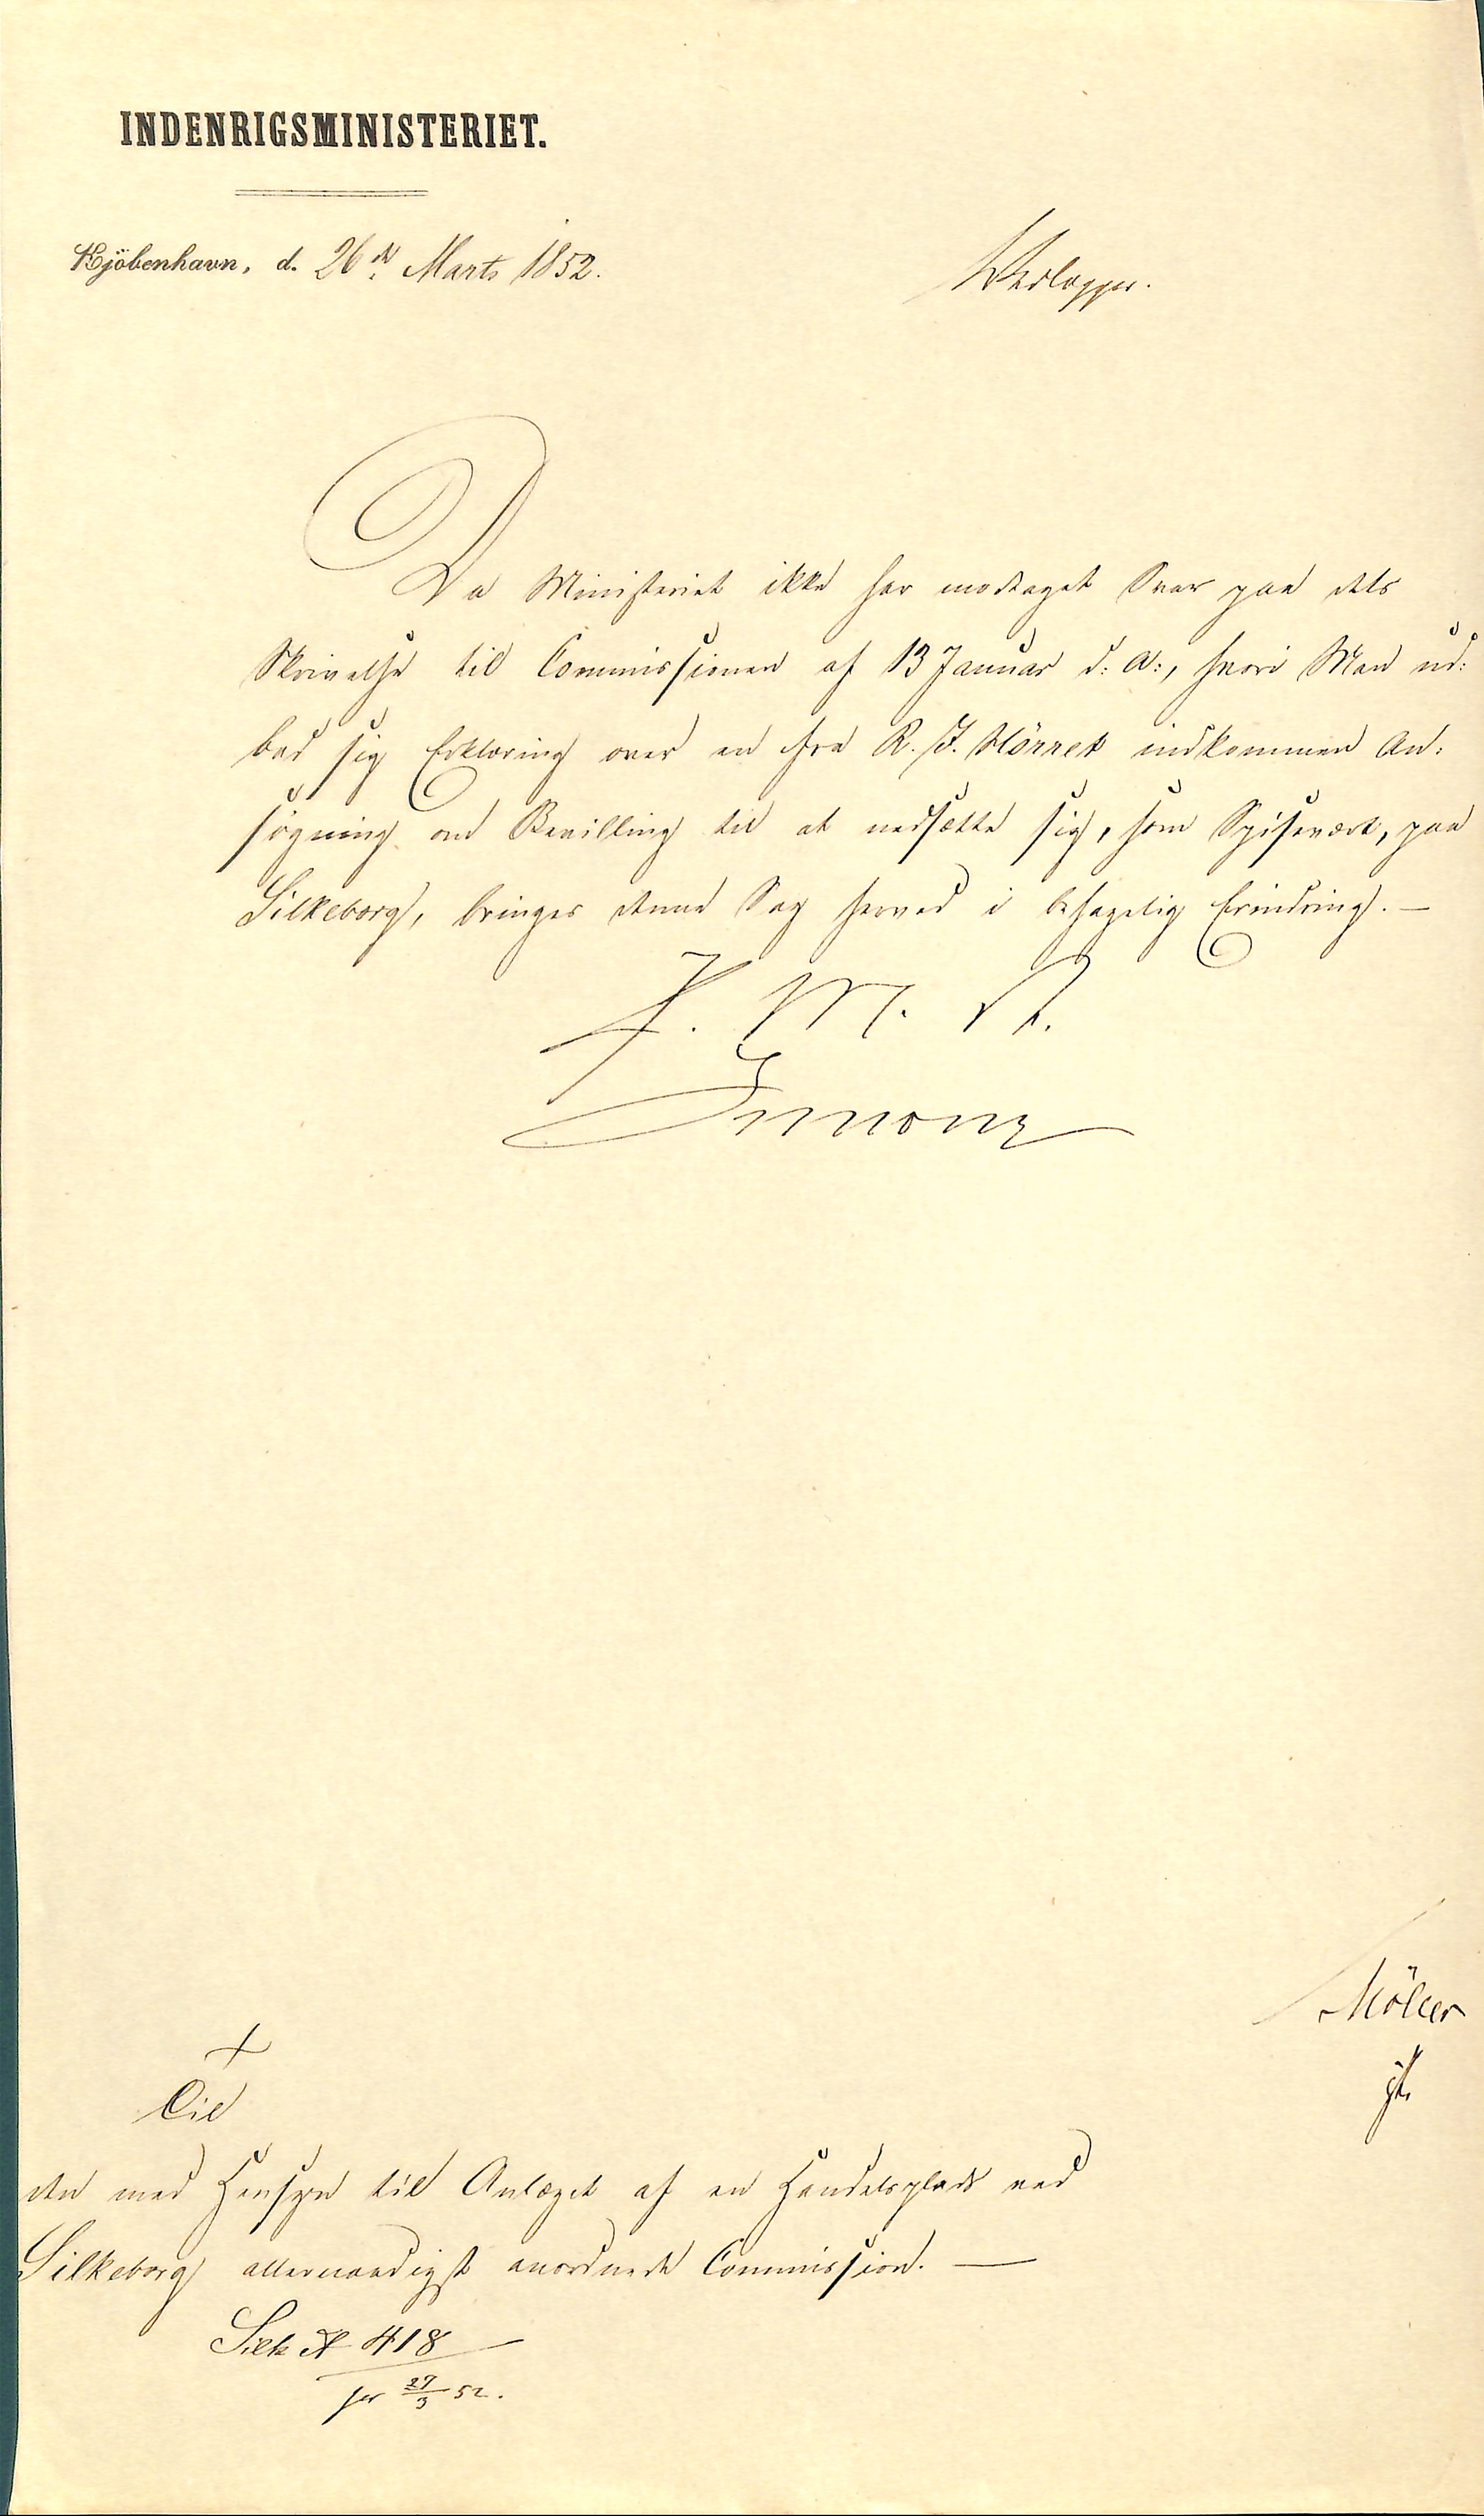 INDENRIGSMINISTERIET.
Kjöbenhavn, d. 26de Marts 1852.
Da Ministeriet ikke har modtaget Svar paa dets
Skrivelse til Commissionen af 13 Januar d: A:, hvori Man ud:
bad sig Erklæring over en fra R. J. indkommen An:
søgning om Bevilling til at nedsætte sig, som Spisevært, paa
Silkeborg, bringes denne Sag herved i behagelig Erindring. —
Simony
Möller
Til
den med Hensyn til Anlæget af en Handelsplads ved
Silkeborg allernaadigst anordnede Commission. —
Silk A 418
27/3 52.